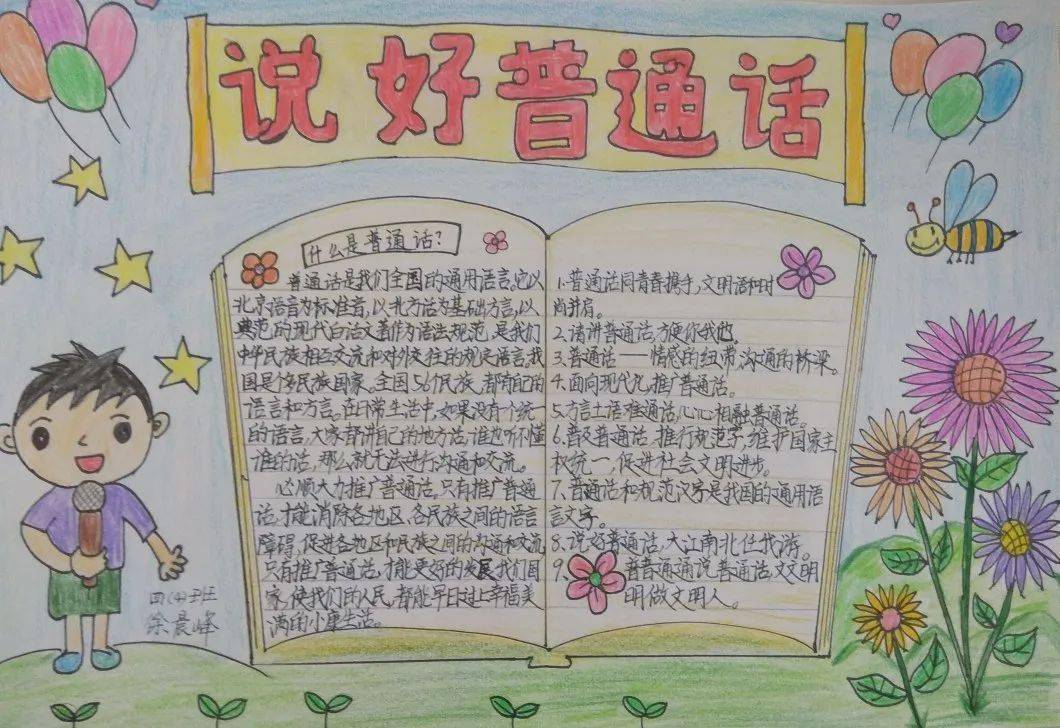 说好普通话
什么是普通话?
普通话是我们全国的通用语言,它以
北京语音为标准音,以北方话为基础方言,以
典范的现代白话文著作为语法规范,是我们
中华民族相互交流和对外交往的规定语言。我
国是个多民族国家。全国56个民族,都有自己的
语言和方言。在日常生活中,如果没有个统一
的语言,大家都讲自己的地方话,谁也听不懂
谁的话,那么就无法进行沟通和交流。
必须大力推广普通话。只有推广普通
话,才能消除各地区、各民族之间的语言
障碍,促进各地区和民族之间的沟通和交流
只有推广普通话,才能更好的发展我们国
家,使我们的人民,都能早日过上幸福美
满的小康生活。
1.普通话同青春携手,文明语和时
尚并肩。
2.请讲普通话,方便你我他。
3.普通话——情感的纽带,沟通的桥梁。
4.面向现代化,推广普通话。
5.方言土语难通话,心心相融普通话。
6.普及普通话,推行规范字,维护国家主
权统一,促进社会文明进步。
7.普通话和规范汉字是我国的通用语
言文字。
8.说好普通话,大江南北任我游。
9.普普通通说普通话,文文明
明做文明人。
四(4)班
徐晨峰